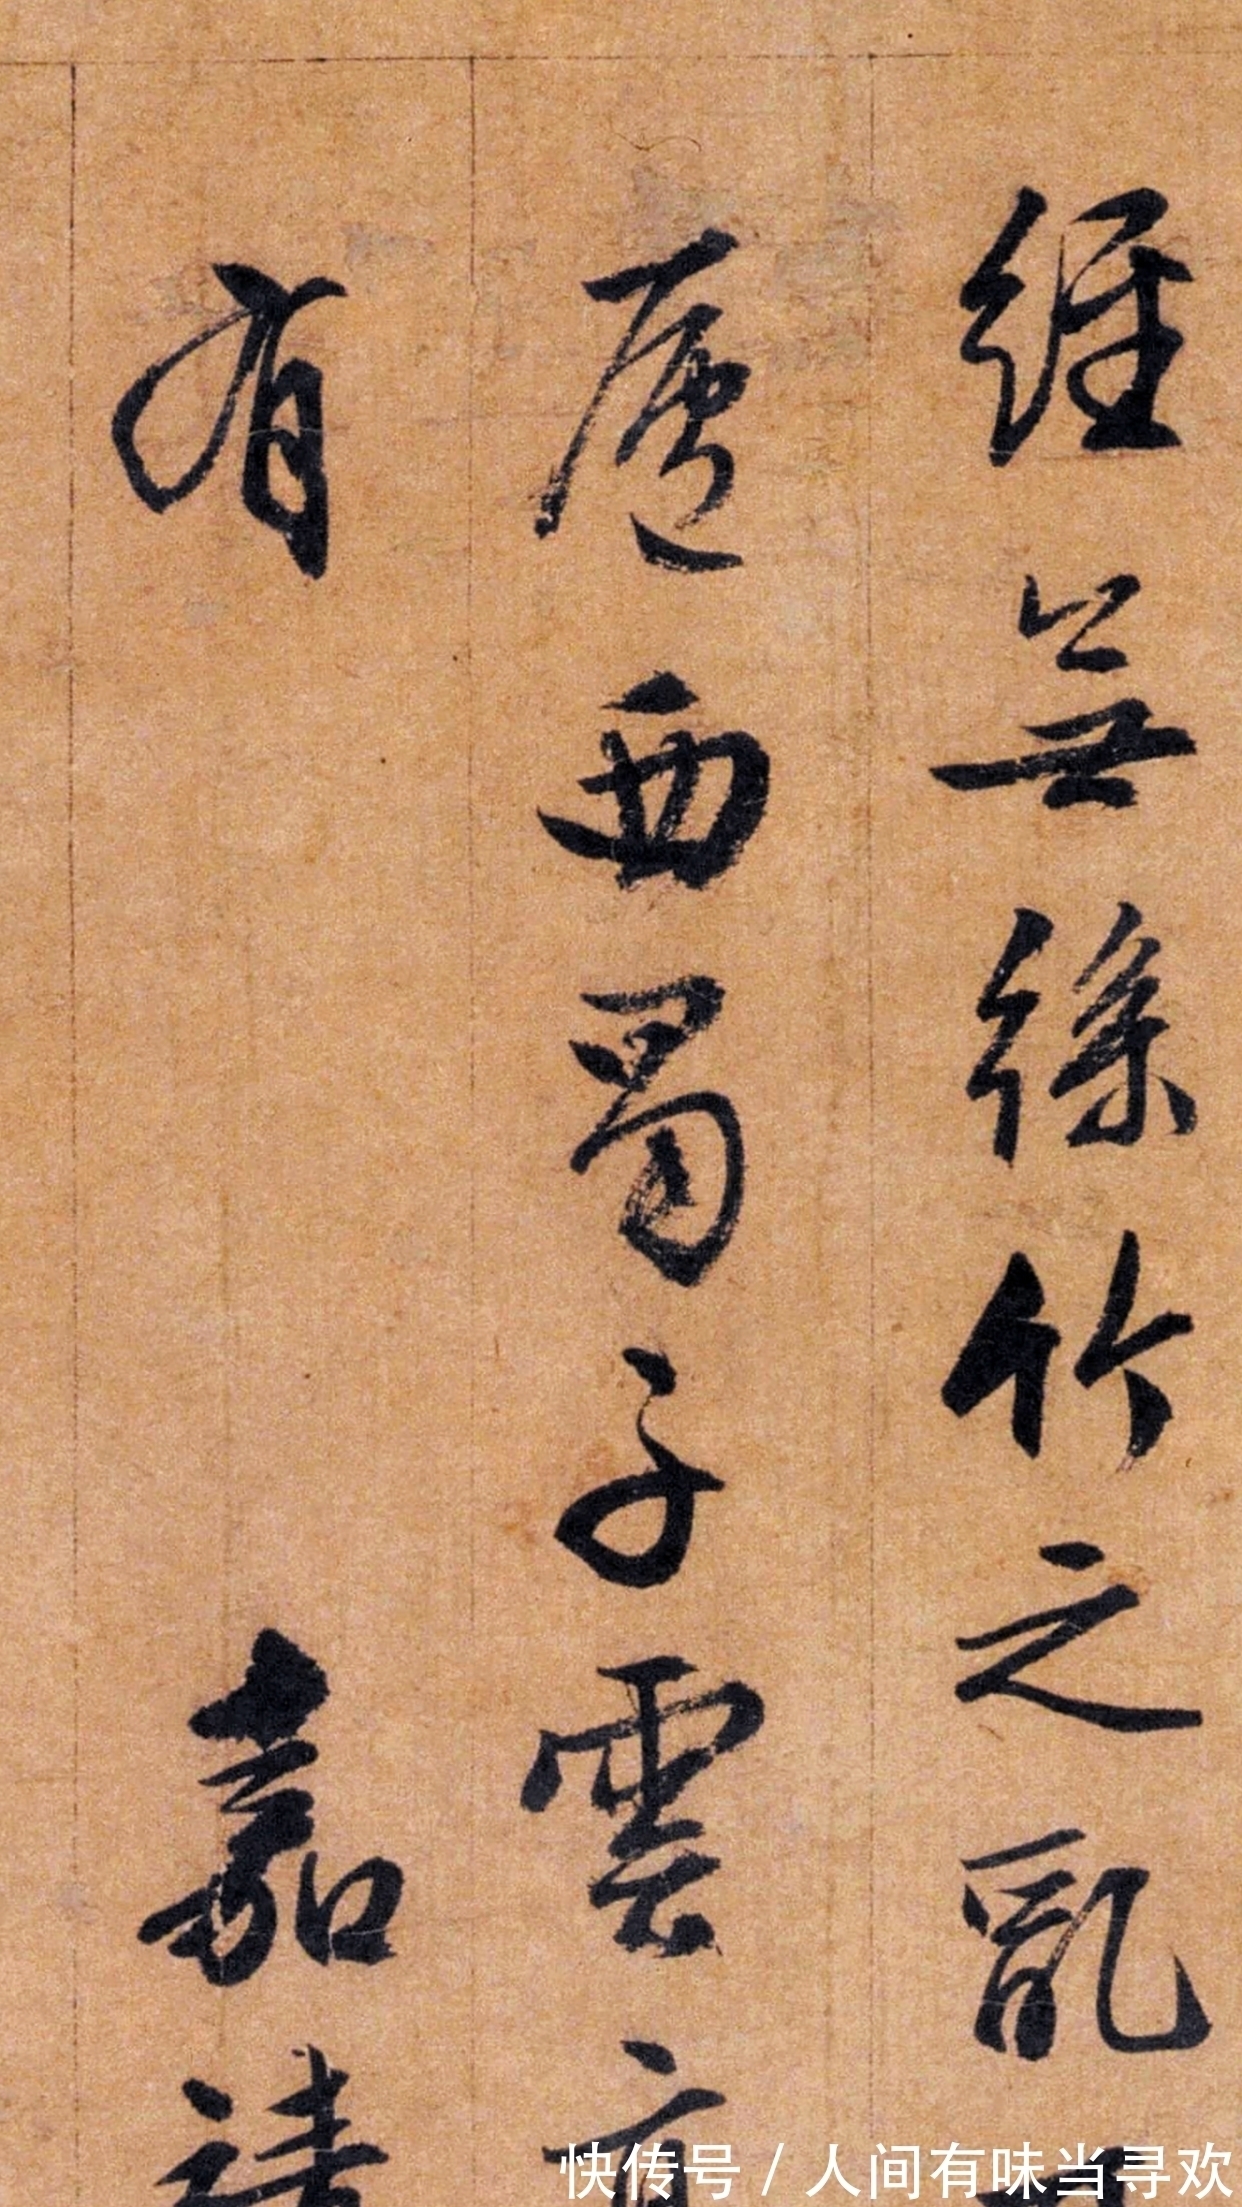 維無絲竹之亂
廬西蜀子雲亭
有
嘉靖
快传号 / 人间有味当寻欢